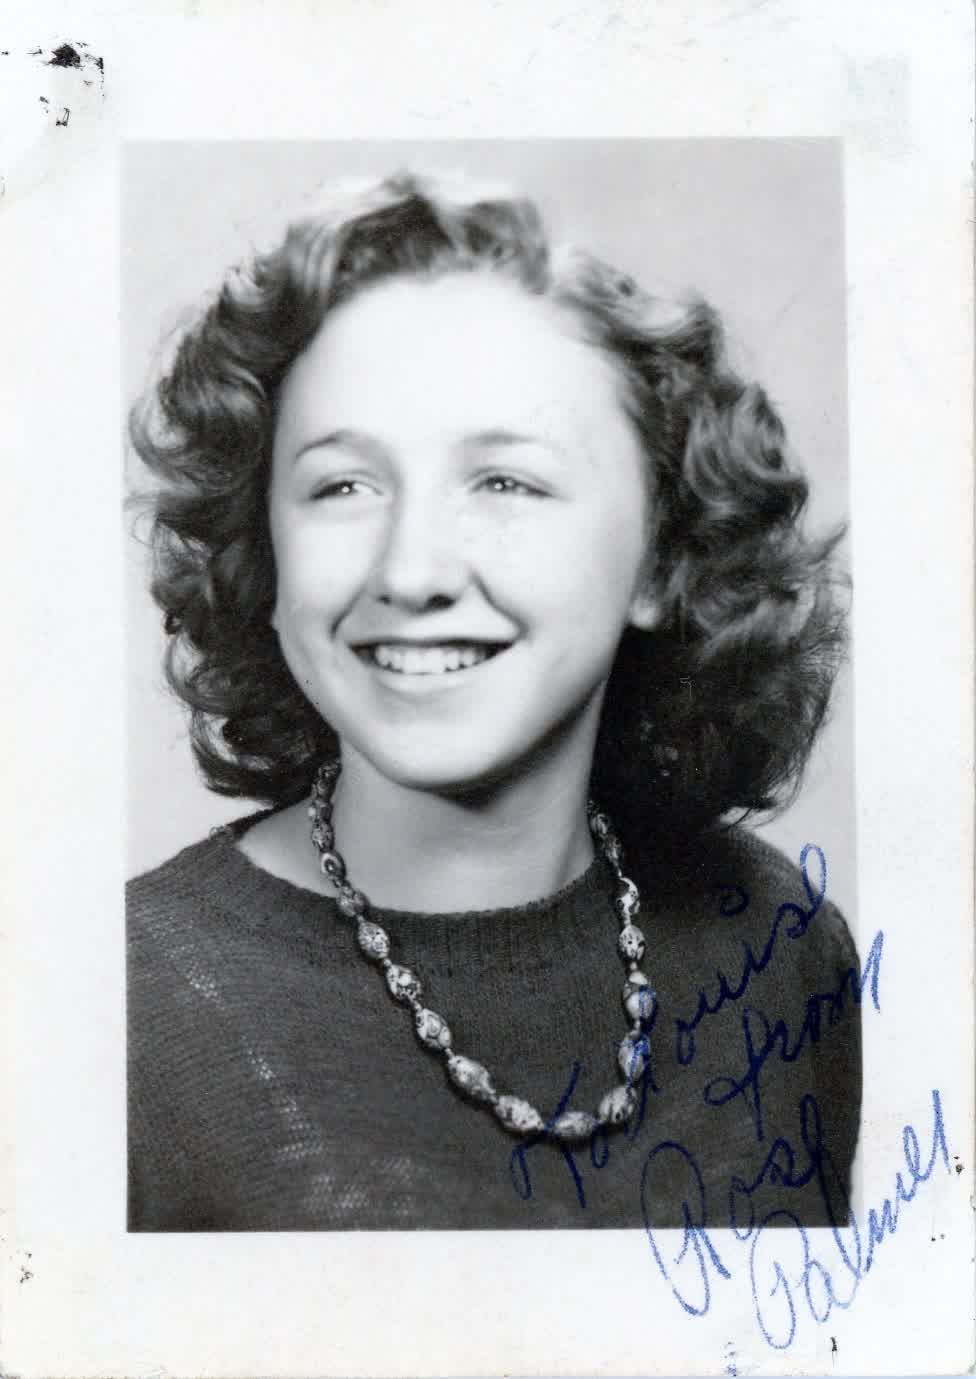 To Louise
from
Rose
Palmer